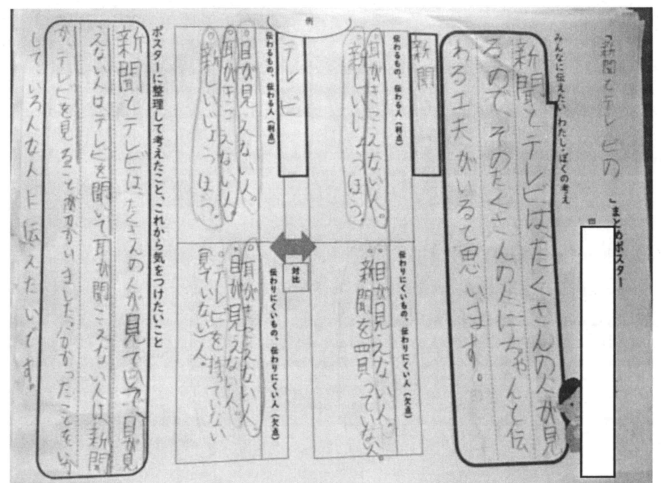 「新聞とテレビの」まとめポスター
みんなに伝えたい わたし・ぼくの考え
新聞とテレビは、たくさんの人が見
るので、そのたくさんの人にちゃんと伝
わる工夫がいると思います。
例
新聞
伝わるもの、伝わる人（利点）
。耳がきこえない人。
。新しいじょうほう。
伝わりにくいもの、伝わりにくい人（欠点）
。目が見えない人。
新聞を買っていない人。
対比
テレビ
伝わるもの、伝わる人（利点）
。目が見えない人。
。耳がきこえない人。
。新しいじょうほう。
伝わりにくいもの、伝わりにくい人（欠点）
。耳がきこえない人。
・目が見えない人。
・テレビを持っていない
人。
ポスターに整理して考えたこと、これから気をつけたいこと
新聞とテレビは、たくさんの人が見ていて、目が見
えない人はテレビを聞いて耳が聞こえない人は、新聞
か、テレビを見ること
して、いろんな人に伝えたいです。